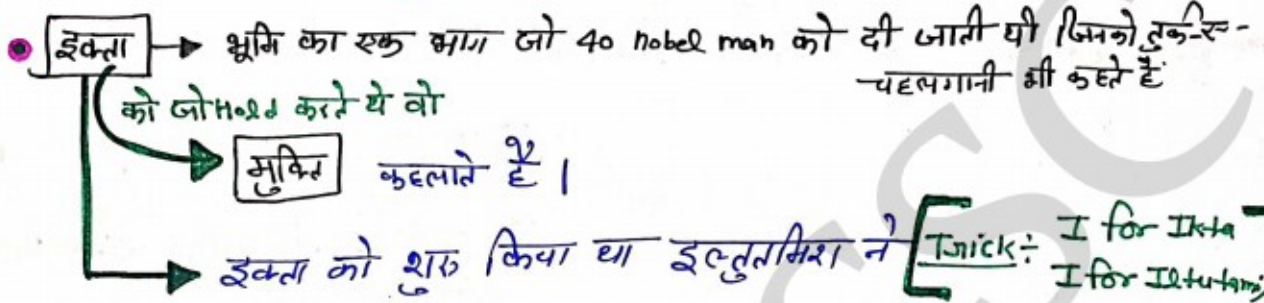 इक्ता → भूमि का एक भाग जो 40 nobel man को दी जाती थी जिनको तुर्क-ए-
चहलगानी भी कहते हैं
को जो Hold करते थे वो
मुक्ति कहलाते है |
इक्ता को शुरू किया था इल्तुतमिश ने [Trick ÷ I for Ikta
I for Iltutami